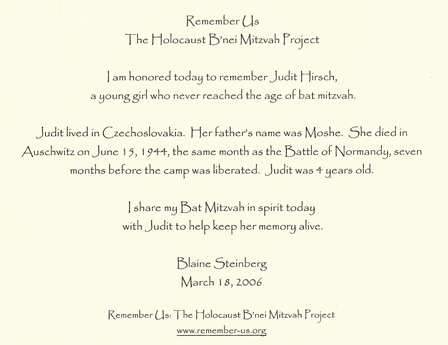 Remember Us
The Holocaust B'nei Mitzvah Project
I am honored today to remember Judit Hirsch,
a young girl who never reached the age of bat mitzvah.
Judit lived in Czechoslovakia. Her father's name was Moshe. She died in
Auschwitz on June 15, 1944, the same month as the Battle of Normandy, seven
months before the camp was liberated. Judit was 4 years old.
I share my Bat Mitzvah in spirit today
with Judit to help keep her memory alive.
Blaine Steinberg
March 18, 2006
Remember Us: The Holocaust B'nei Mitzvah Project
www.remember-us.org